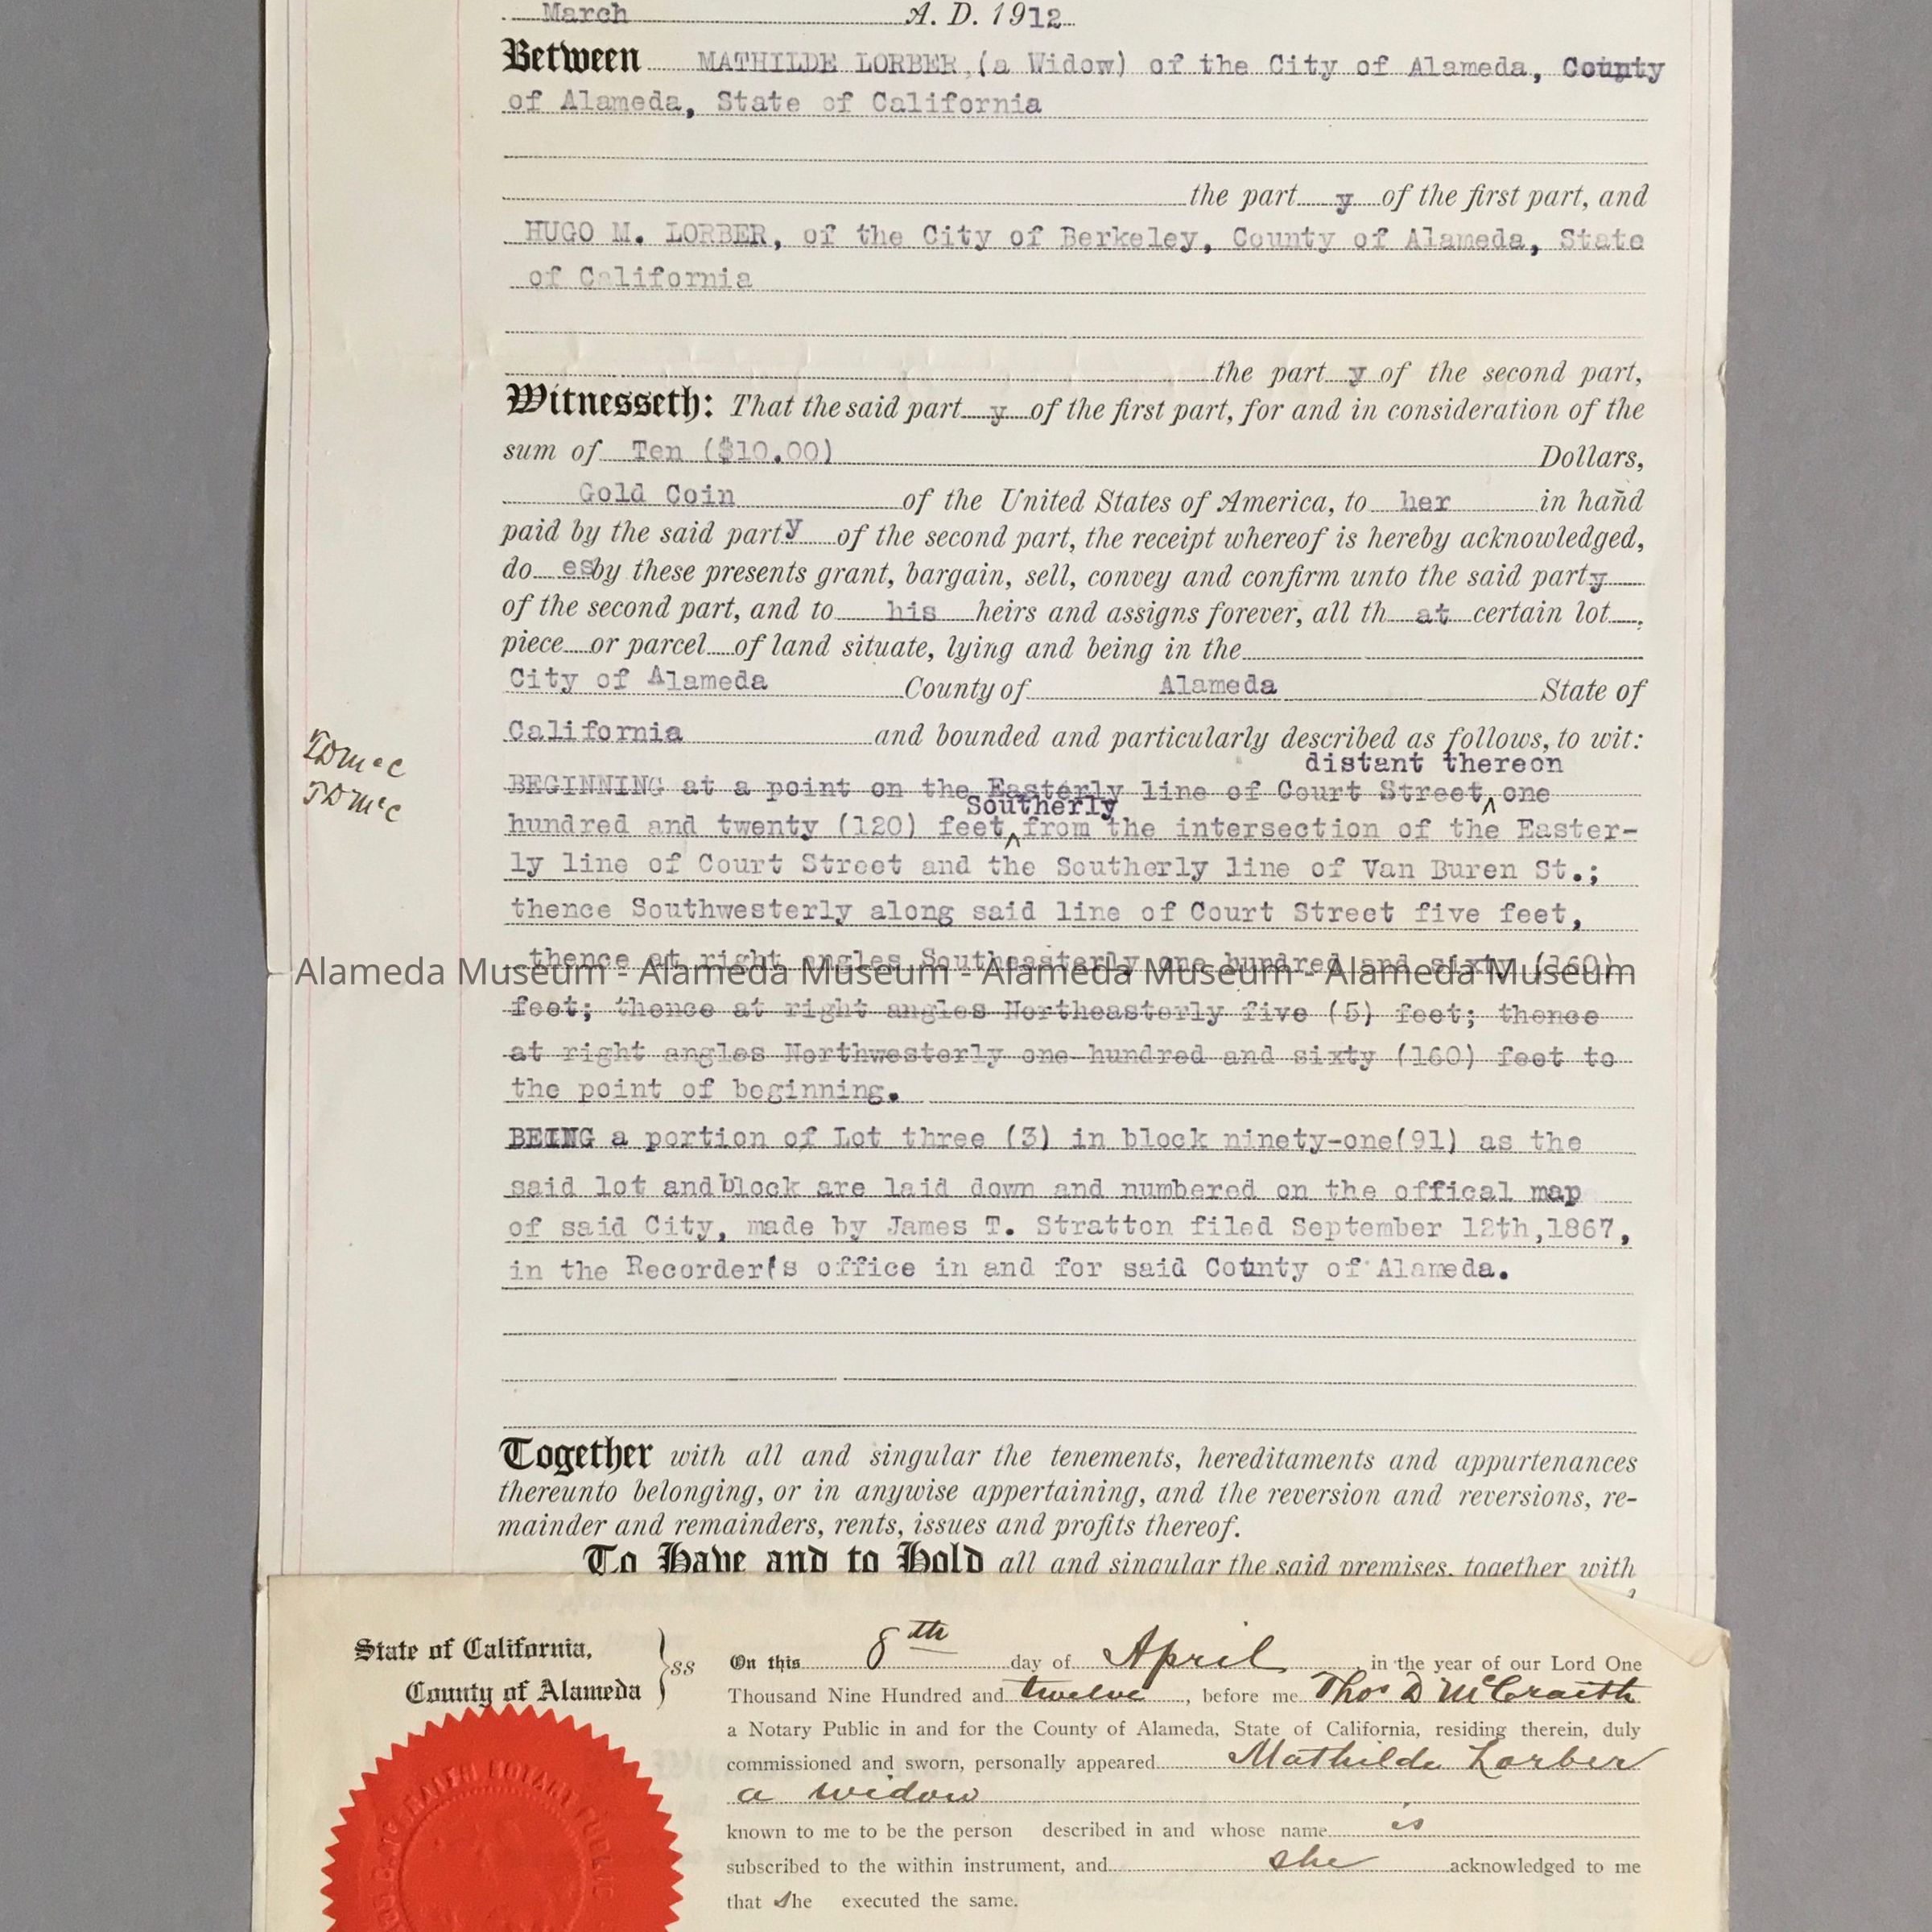 March A. D. 1912
Between MATHILDE LORBER, (a Widow) of the City of Alameda, County
of Alameda, State of California
the part y of the first part, and
HUGO M. LORBER, of the City of Berkeley, County of Alameda, State
of California
the part y of the second part,
Witnesseth: That the said part y of the first part, for and in consideration of the
sum of Ten ($10.00) Dollars,
Gold Coin of the United States of America, to her in hand
paid by the said party of the second part, the receipt whereof is hereby acknowledged,
do es by these presents grant, bargain, sell, convey and confirm unto the said party
of the second part, and to his heirs and assigns forever, all th at certain lot ,
piece or parcel of land situate, lying and being in the
City of Alameda County of Alameda State of
California and bounded and particularly described as follows, to wit:
TDMcC
TDMcC
distant thereon
BEGINNING at a point on the Easterly line of Court Street, ^ one
Southerly
hundred and twenty (120) feet ^ from the intersection of the Easter-
ly line of Court Street and the Southerly line of Van Buren St.;
thence Southwesterly along said line of Court Street five feet,
thence at right angles Southeasterly one hundred and sixty (160)
Alameda Museum - Alameda Museum - Alameda Museum - Alameda Museum
feet; thence at right angles Northeasterly five (5) feet; thence
at right angles Northwesterly one hundred and sixty (160) feet to
the point of beginning.
BEING a portion of Lot three (3) in block ninety-one(91) as the
said lot and block are laid down and numbered on the offical map
of said City, made by James T. Stratton filed September 12th,1867,
in the Recorder's office in and for said County of Alameda.
Together with all and singular the tenements, hereditaments and appurtenances
thereunto belonging, or in anywise appertaining, and the reversion and reversions, re-
mainder and remainders, rents, issues and profits thereof.
To Have and to Hold all and singular the said premises, together with
State of California,
County of Alameda } ss
On this 8th day of April in the year of our Lord One
Thousand Nine Hundred and twelve, before me Thos D McCraith
a Notary Public in and for the County of Alameda, State of California, residing therein, duly
commissioned and sworn, personally appeared Mathilde Lorber
a widow
known to me to be the person described in and whose name is
subscribed to the within instrument, and she acknowledged to me
that she executed the same.
NOTARY PUBLIC